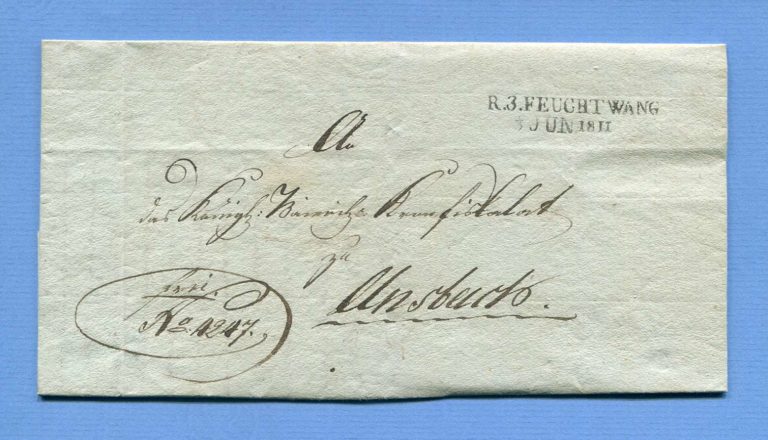 R.3.FEUCHTWANG
JUN 1811
An
das Königl: Baierische Kronfiskalat
zu
Ansbach.
frei.
No. 4247.